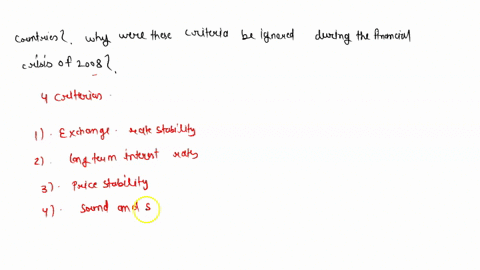 countries?. why were these criteria be ignored during the financial
crisis of 2008?.
4 criterias.
1). Exchange. rate stability
2). Long term interest rates
3). Price stability
4). Sound and s